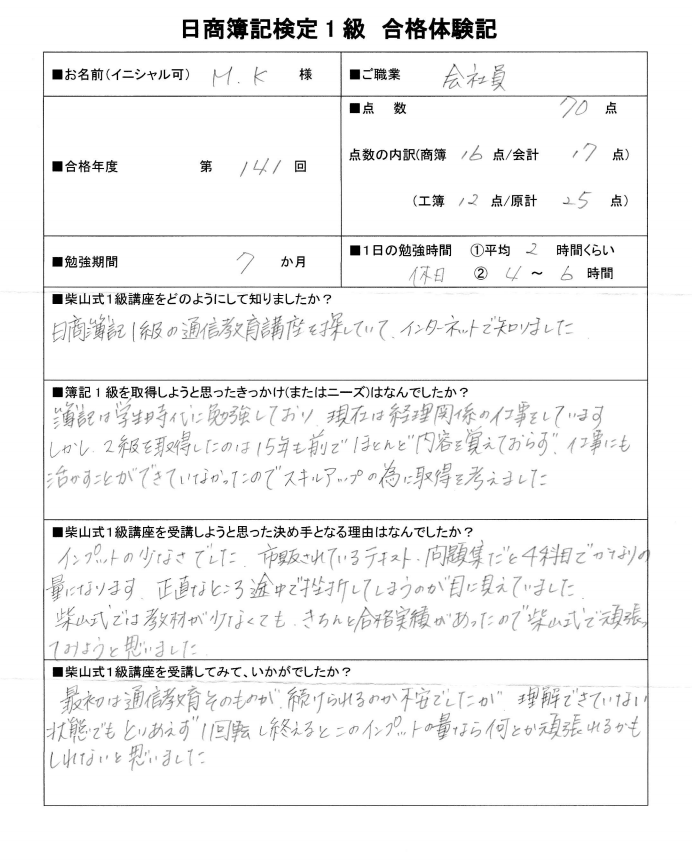 日商簿記検定１級　合格体験記
■お名前（イニシャル可）　M.K　様
■ご職業　会社員
■合格年度　第　141　回
■点　数　70　点
点数の内訳（商簿　16　点/会計　17　点）
（工簿　12　点/原計　25　点）
■勉強期間　7　か月
■１日の勉強時間　①平均　2　時間くらい
休日　②　4　～　6　時間
■柴山式１級講座をどのようにして知りましたか？
日商簿記1級の通信教育講座を探していて、インターネットで知りました
■簿記１級を取得しようと思ったきっかけ（またはニーズ）はなんでしたか？
簿記は学生時代に勉強しており、現在は経理関係の仕事をしています
しかし、2級を取得したのは15年も前でほとんど内容を覚えておらず、仕事にも
活かすことができていなかったのでスキルアップの為に取得を考えました
■柴山式１級講座を受講しようと思った決め手となる理由はなんでしたか？
インプットの少なさでした。市販されているテキスト、問題集だと4科目でかなりの
量になります。正直なところ途中で挫折してしまうのが目に見えていました。
柴山式では教材が少なくても、きちんと合格実績があったので柴山式で頑張っ
てみようと思いました
■柴山式１級講座を受講してみて、いかがでしたか？
最初は通信教育そのものが、続けられるのか不安でしたが、理解できていない
状態でもとりあえず1回転し終えるとこのインプットの量なら何とか頑張れるかも
しれないと思いました